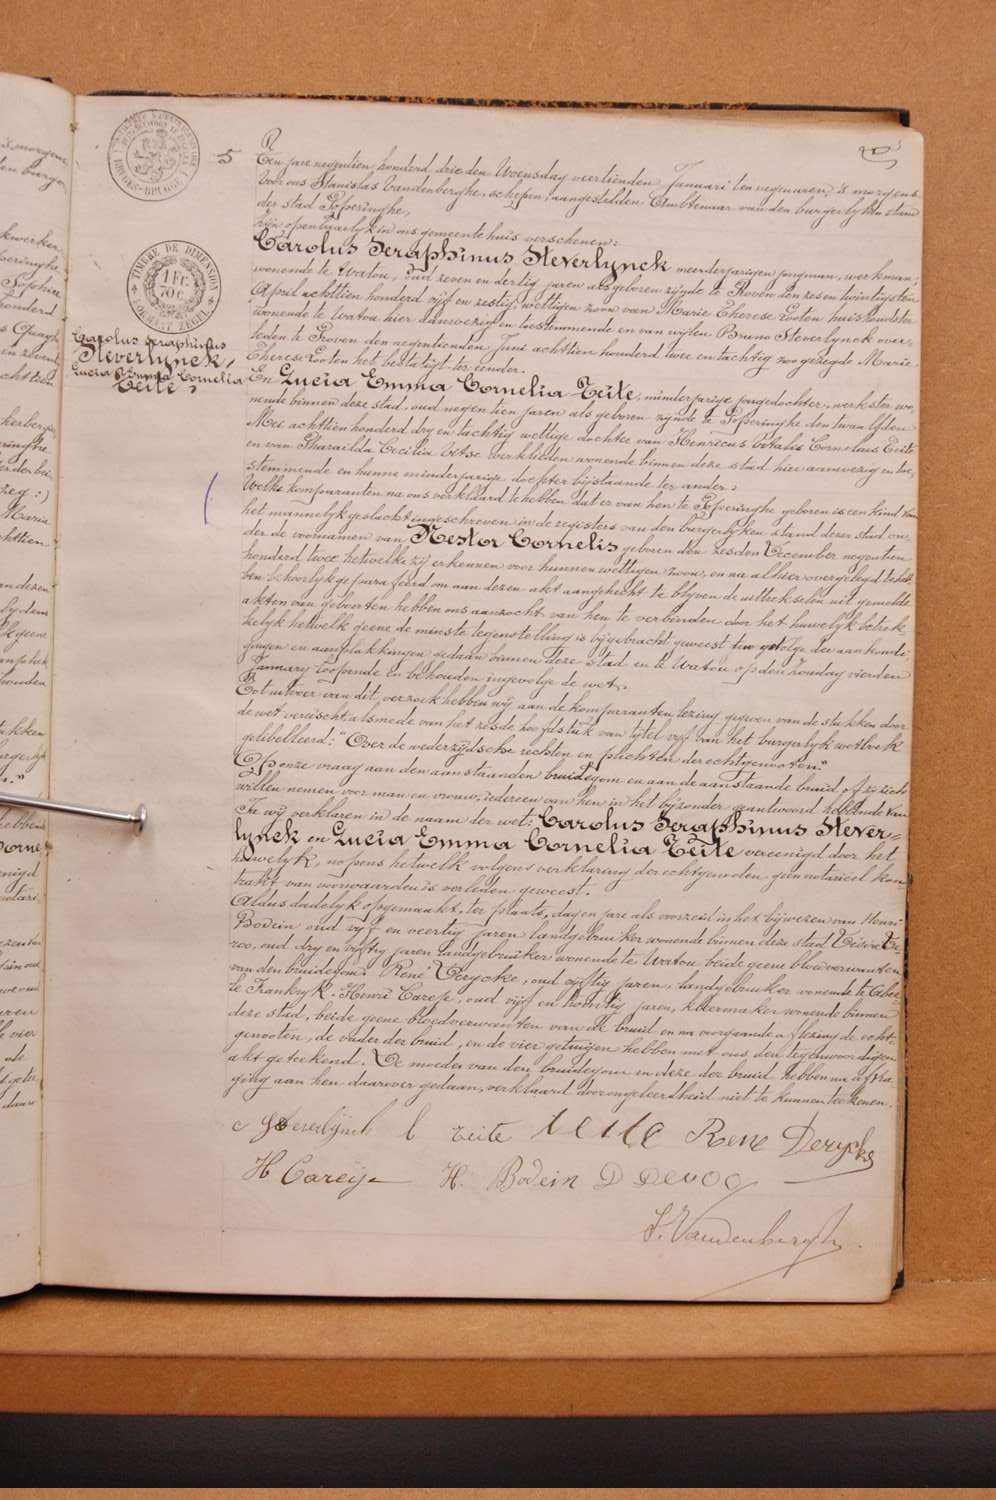 5
Een jare negentien honderd drie den Woensdag veertienden Januari ten negen uren, 's morgens
Voor ons Stanislas Vandenberghe, schepen, aangestelden Ambtenaar van den burgerlyken stand
der stad Poperinghe,
zijn openbaarlyk in ons gemeentehuis verschenen:
Carolus Seraphinus Steverlynck meerderjarigen jongman, werkman,
wonende te Watou, oud zeven en dertig jaren als geboren zijnde te Proven den zes en twintigsten
April achttien honderd vijf en zestig, wettigen zoon van Marie Therese Looten huishoudster
wonende te Watou hier aanwezig en toestemmende en van wijlen Bruno Steverlynck over-
leden te Proven den negentienden Juni achttien honderd twee en tachtig zoo gezegde Marie
Therese Looten het bestatigt ter eender.
En Lucia Emma Cornelia Teite, minderjarige jongedochter, werkster wo-
nende binnen deze stad, oud negentien jaren als geboren zijnde te Poperinghe den twaalfden
Mei achttien honderd dry en tachtig wettige dochter van Henricus Vitalis Cornelius Teite
en van Pharaïlda Cecilia Vitse werklieden wonende binnen deze stad hier aanwezig en toe-
stemmende en hunne minderjarige dochter bijstaande ter ander;
Welke komparanten na ons verklaard te hebben dat er van hen te Poperinghe geboren is een kind van
het mannelyk geslacht ingeschreven in de registers van den burgerlyken stand dezer stad on-
der de voornamen van Nestor Cornelis geboren den zesden December negentien
honderd twee hetwelke zij erkennen voor hunnen wettigen zoon, en na alhier overgelegd te heb-
ben behoorlyk geparafeerd om aan dezen akt aangehecht te blyven de uittrekselen uit gemelde
akten van geboorten hebben ons aanzocht van hen te verbinden door het huwelyk betrek-
kelyk hetwelk geene de minste tegenstelling is bygebracht geweest ten gevolge der aankondi-
gingen en aanplakkingen gedaan binnen deze stad en te Watou op den Zondag vierden
January loopende en behouden ingevolge de wet.
Tot uitvoer van dit verzoek hebben wij aan de komparanten lezing gegeven van de stukken door
de wet vereischt alsmede van het zesde hoofdstuk van tytel vyf van het burgerlyk wetboek
gelibelleerd: "Over de wederzydsche rechten en plichten der echtgenooten."
Op onze vraag aan den aanstaanden bruidegom en aan de aanstaande bruid of zij zich
willen nemen voor man en vrouw, iedereen van hen in het bijzonder geantwoord hebbende van
Ja wij verklaren in de naam der wet: Carolus Seraphinus Stever-
lynck en Lucia Emma Cornelia Teite vereenigd door het
huwelyk, nopens hetwelk volgens verklaring der echtgenooten geen notarieel kon-
trakt van voorwaarden is verleden geweest.
Aldus dadelyk opgemaakt, ter plaats, dag en jare als voorzeid in het bijwezen van Henri
Bodein oud vyf en veertig jaren landgebruiker wonende binnen deze stad Désiré De-
voo, oud dry en vyftig jaren landgebruiker wonende te Watou beide geene bloedverwanten
van den bruidegom; René Derycke, oud vyftig jaren, landgebruiker wonende te Abee-
le Frankryk. Henri Careye, oud vijf en twintig jaren, kleermaker wonende binnen
deze stad, beide geene bloedverwanten van de bruid en na voorgaande aflezing de echt-
genooten, de vader der bruid, en de vier getuigen hebben met ons den tegenwoordigen
akt geteekend. De moeder van den bruidegom en deze der bruid hebben na afvra-
ging aan hen daarover gedaan, verklaard door ongeleerdheid niet te kunnen teekenen.
C Steverlijnck L Teite teite René Derycke
H Careije H. Bodein D Devoo
S. Vandenberghe.
Carolus Seraphinus
Steverlynck,
Lucia Emma Cornelia
Teite,
TIMBRE DE DIMENSION
1 FR.
70 C
FORMAAT ZEGEL